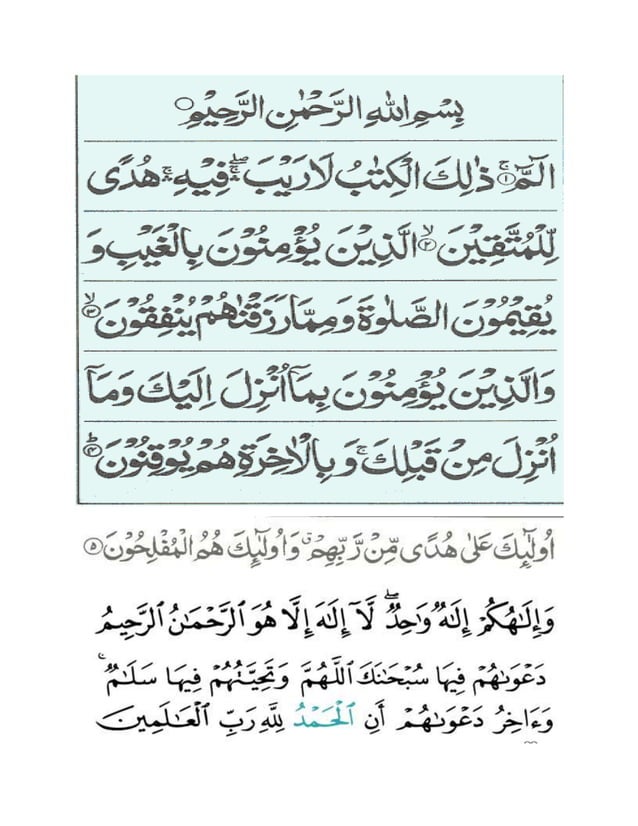 بِسْمِ اللهِ الرَّحْمٰنِ الرَّحِيْمِ
الٓمّٓ ۚ﴿۱﴾ ذٰلِكَ الْكِتٰبُ لَا رَيْبَ ۛۖ فِيْهِ ۛۚ هُدًى
لِّلْمُتَّقِيْنَ ۙ﴿۲﴾ الَّذِيْنَ يُؤْمِنُوْنَ بِالْغَيْبِ وَ
يُقِيْمُوْنَ الصَّلٰوةَ وَمِمَّا رَزَقْنٰهُمْ يُنْفِقُوْنَ ۙ﴿۳﴾
وَالَّذِيْنَ يُؤْمِنُوْنَ بِمَاۤ اُنْزِلَ اِلَيْكَ وَمَاۤ
اُنْزِلَ مِنْ قَبْلِكَ ۚ وَبِالْاٰخِرَةِ هُمْ يُوْقِنُوْنَ ؕ﴿۴﴾
اُولٰٓئِكَ عَلٰى هُدًى مِّنْ رَّبِّهِمْ ۗ وَاُولٰٓئِكَ هُمُ الْمُفْلِحُوْنَ ﴿۵﴾
وَإِلَٰهُكُمْ إِلَٰهٌ وَٰحِدٌ ۖ لَّآ إِلَٰهَ إِلَّا هُوَ ٱلرَّحْمَٰنُ ٱلرَّحِيمُ
دَعْوَىٰهُمْ فِيهَا سُبْحَٰنَكَ ٱللَّهُمَّ وَتَحِيَّتُهُمْ فِيهَا سَلَٰمٌ ۚ
وَءَاخِرُ دَعْوَىٰهُمْ أَنِ ٱلْحَمْدُ لِلَّهِ رَبِّ ٱلْعَٰلَمِينَ